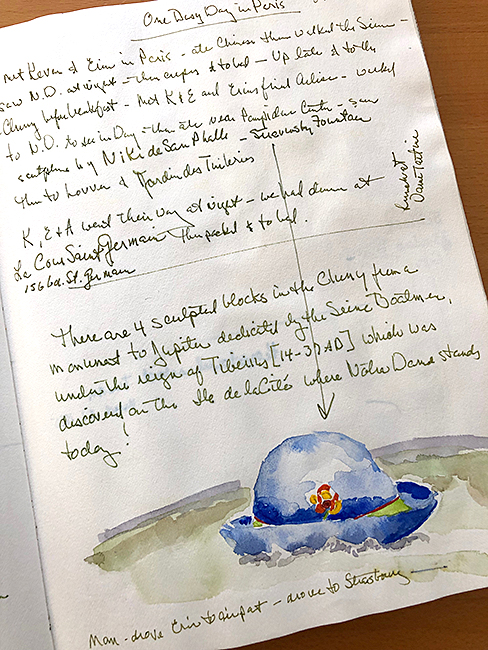 One Busy Day in Paris
met Kevan & Erin in Paris - ate Chinese then walked the Seine -
saw N.D. at night - then crepes & to bed - Up late & to the
Cluny before breakfast - Met K & E and Erin's friend - walked
to N.D. to see in Day - then ate near Pompidou Centre - saw
sculpture by Niki de San Phalle - Stravinsky Fountain
then to Louvre & Jardin des Tuileries
K, E & A went their way at night - we had dinner at
La Cour Saint Germain then packed & to bed.
156 bd. St. Germain
lunch at
Dame Tartine
There are 4 sculpted blocks in the Cluny from a
monument to Jupiter dedicated by the Seine Boatmen,
under the reign of Tiberius [14-37 AD] which was
discovered on the Ile de la Cité where Nôtre Dame stands
today!
Mon - drove Erin to airport - drove to Strasbourg